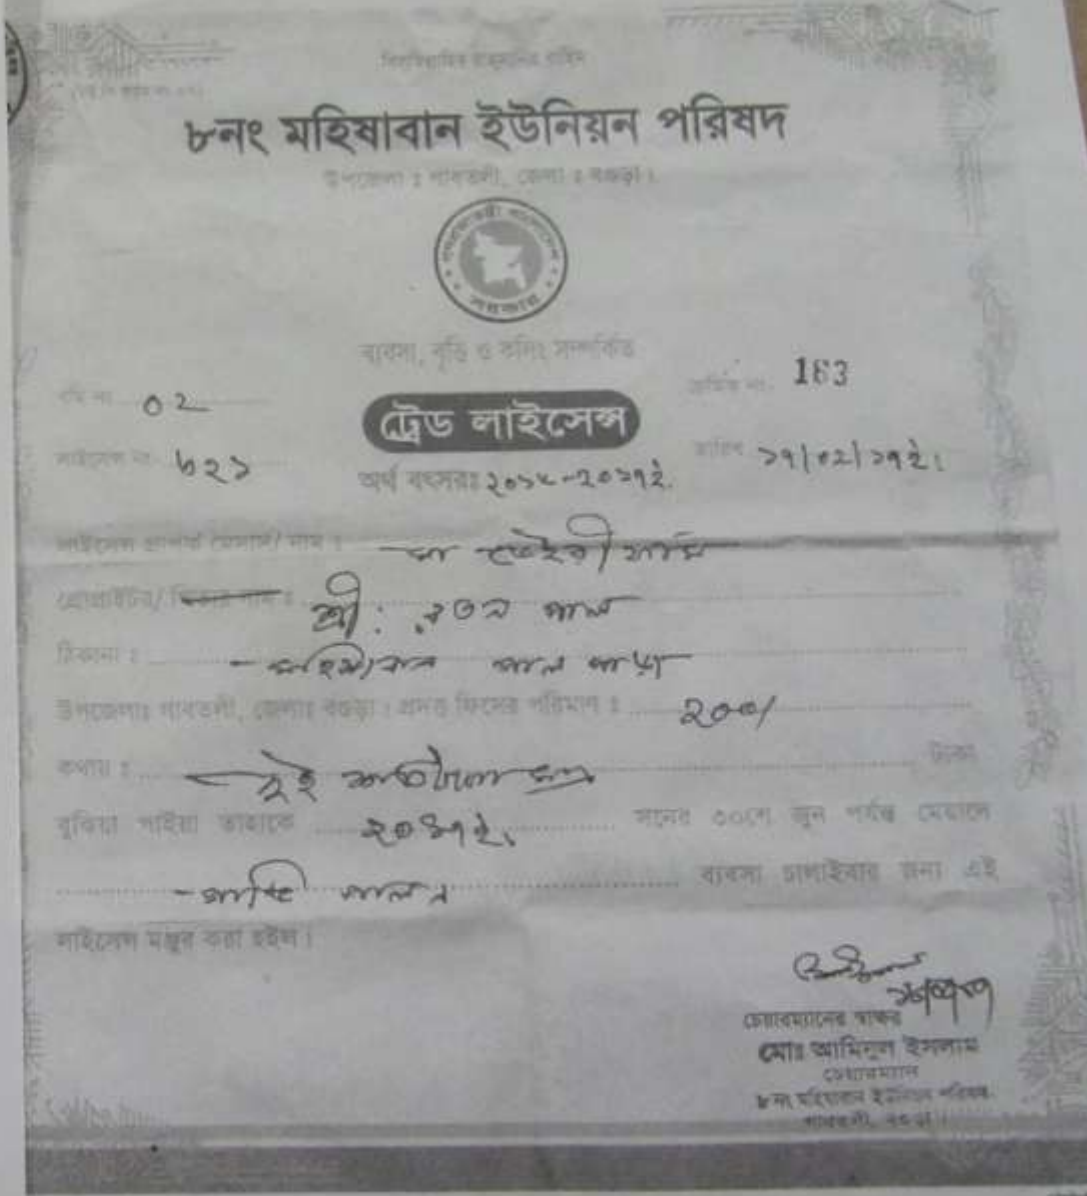 ৮নং মহিষাবান ইউনিয়ন পরিষদ
উপজেলা ঃ গাবতলী, জেলা ঃ বগুড়া।
গণপ্রজাতন্ত্রী বাংলাদেশ
সরকার
ব্যবসা, বৃত্তি ও কলিং সম্পর্কিত
বহি নং 02
ক্রমিক নং 163
ট্রেড লাইসেন্স
লাইসেন্স নং ৮২১
তারিখ ১৭/০২/১৭ইং
অর্থ বৎসরঃ ২০১৬-২০১৭ইং
লাইসেন্স প্রাপকের মেসার্স/ নাম ঃ মা ডেইরী ফার্ম
প্রোপ্রাইটর/ পিতার নাম ঃ শ্রী: রতন পাল
ঠিকানা ঃ মহিষাবান পাল পাড়া
উপজেলাঃ গাবতলী, জেলাঃ বগুড়া। প্রদত্ত ফিসের পরিমান ঃ ২০০/
কথায় ঃ দুই শত টাকা মাত্র টাকা
বুঝিয়া পাইয়া তাহাকে ২০১৭ইং সনের ৩০শে জুন পর্যন্ত মেয়াদে
গাভী পালন ব্যবসা চালাইবার জন্য এই
লাইসেন্স মঞ্জুর করা হইল।
চেয়ারম্যানের স্বাক্ষর
মোঃ আমিনুল ইসলাম
চেয়ারম্যান
৮নং মহিষাবান ইউনিয়ন পরিষদ
গাবতলী, বগুড়া।